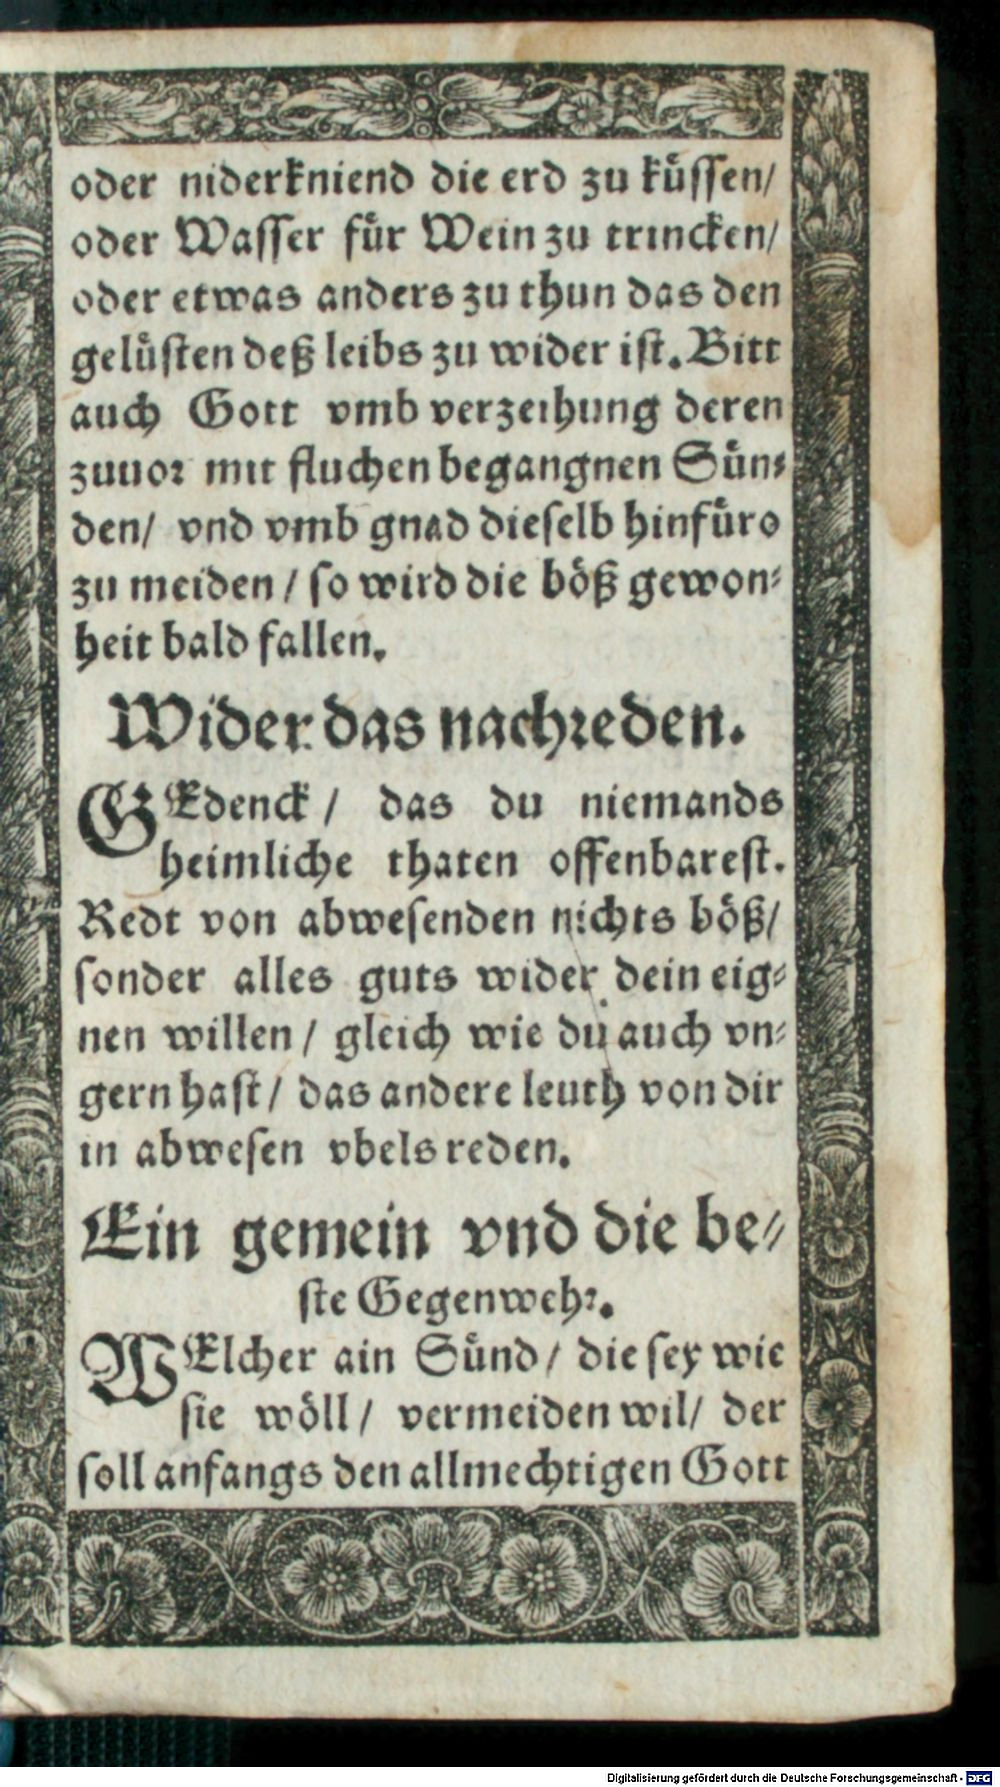 oder niderkniend die erd zu küssen/
oder Wasser für Wein zu trincken/
oder etwas anders zu thun das den
gelüsten deß leibs zu wider ist. Bitt
auch Gott vmb verzeihung deren
zuuor mit fluchen begangnen Sün⸗
den/ vnd vmb gnad dieselb hinfüro
zu meiden / so wird die böß gewon⸗
heit bald fallen.
Wider das nachreden.
GEdenck / das du niemands
heimliche thaten offenbarest.
Redt von abwesenden nichts böß/
sonder alles guts wider dein eig⸗
nen willen / gleich wie du auch vn⸗
gern hast / das andere leuth von dir
in abwesen vbels reden.
Ein gemein vnd die be⸗
ste Gegenwehr.
WElcher ain Sünd / die sey wie
sie wöll / vermeiden wil/ der
soll anfangs den allmechtigen Gott
Digitalisierung gefördert durch die Deutsche Forschungsgemeinschaft - DFG